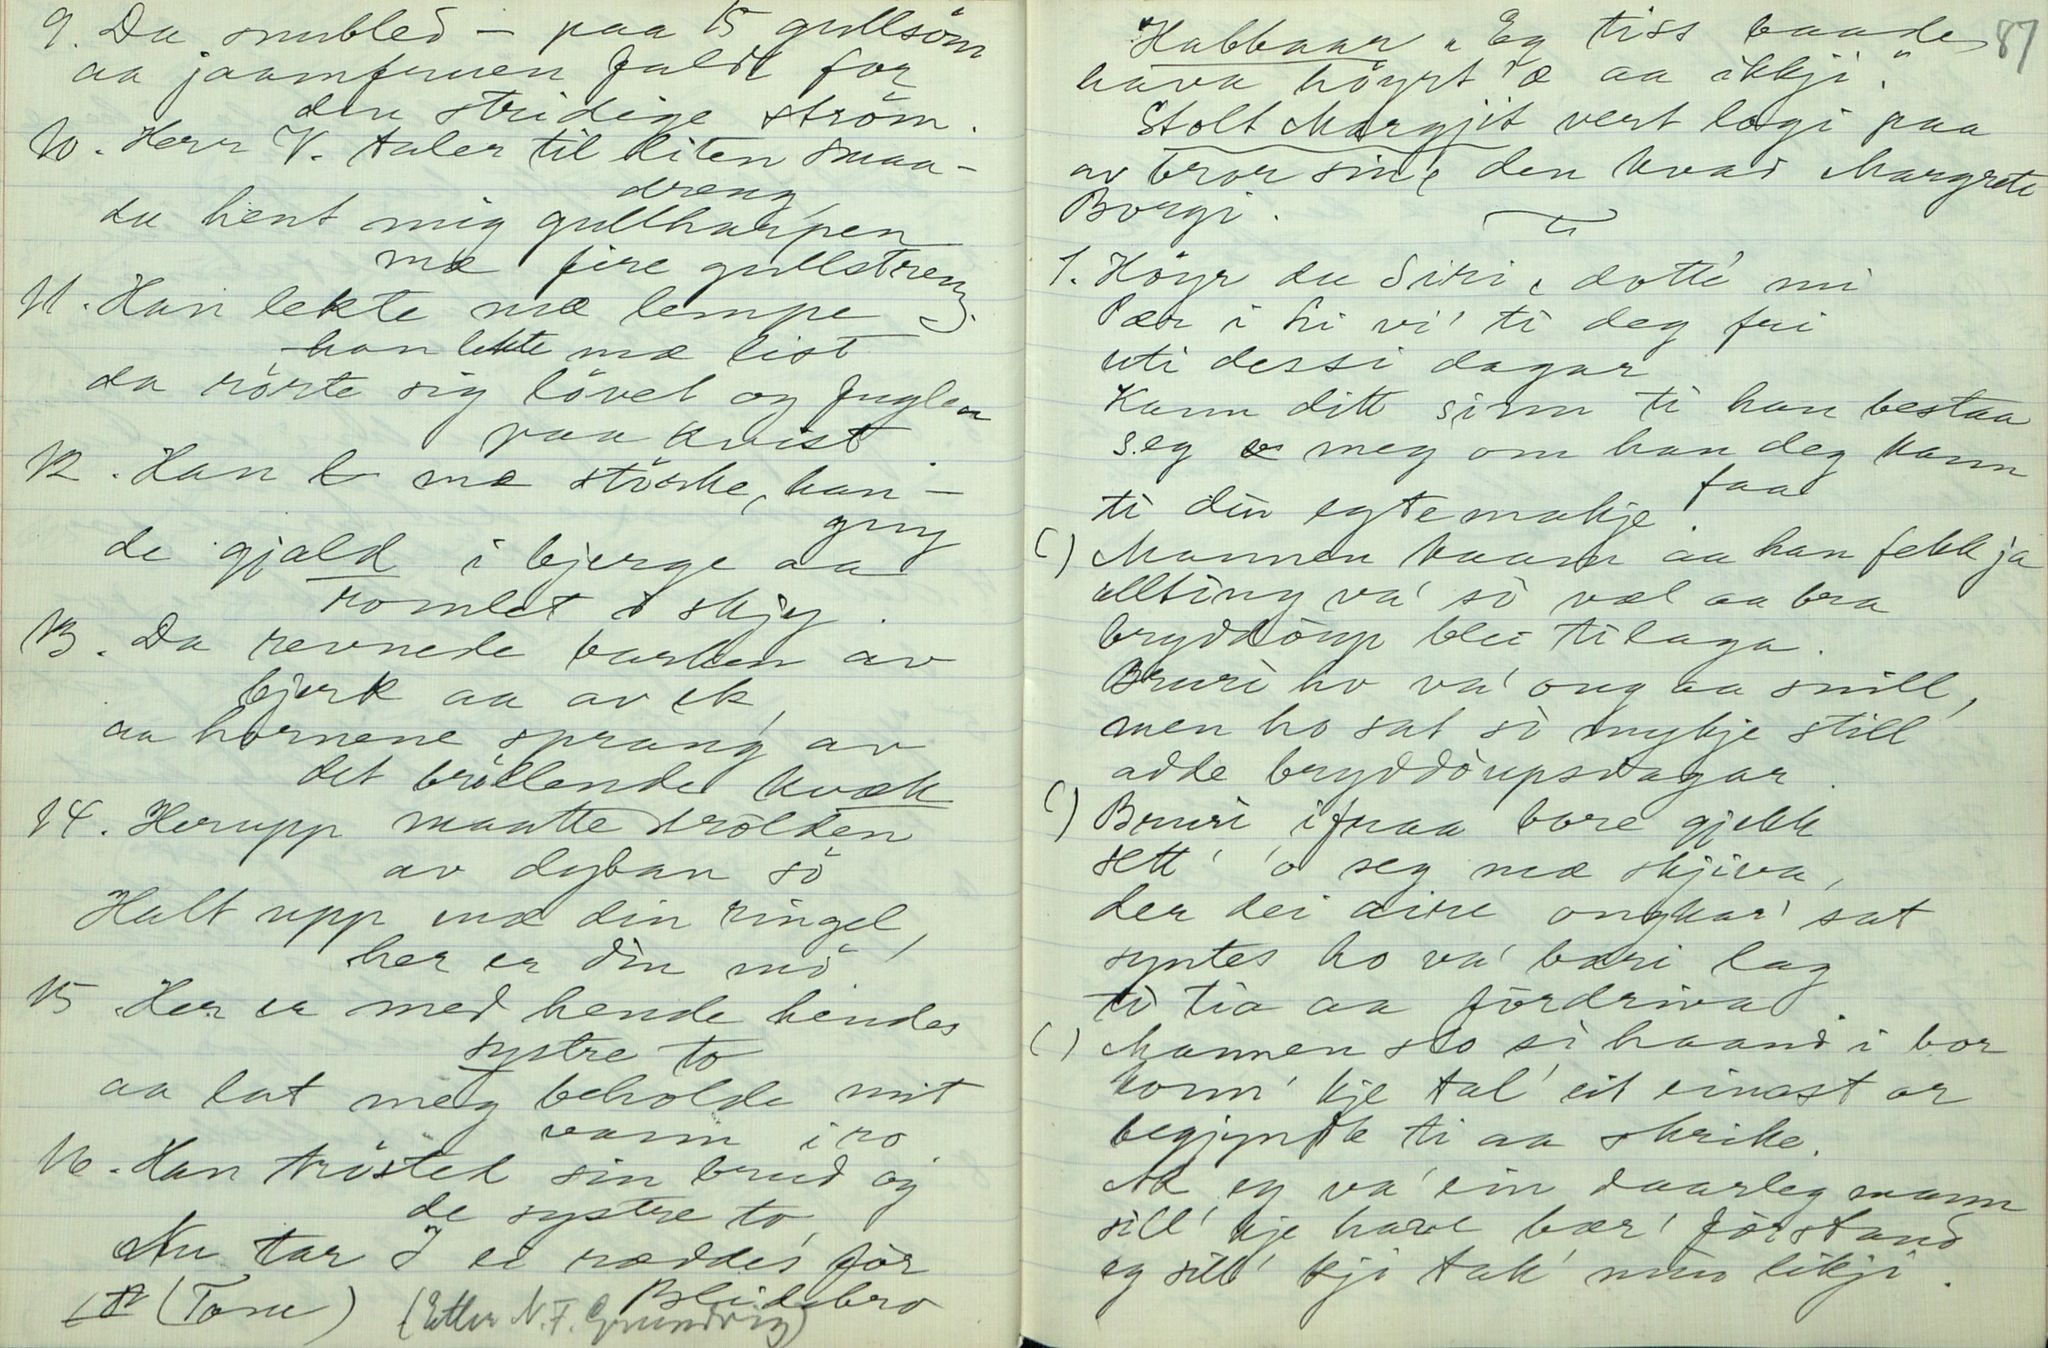 9. Da snubled – paa 15 gullsöm
aa jaamfruen faldt for
den stridige ström.
10. Herr V. taler til liten smaa-
dreng,
du hent mig gullharpen
mæ fire gullstreng.
11. Han lekte mæ lempe
han lekte mæ list
da rörte sig lövet og fuglen
paa kvist.
12. Han l mæ störske, han –
gny
de gjald i bjerge aa
romlet i skjy.
13. Da revnede barken av
bjerk aa av ek,
aa hornene sprang av
det bröllende kvæk
14. Herupp maatte trolden
av dyban sö
Halt upp mæ din ringel,
her er din mö
15. Her er med hende hendes
systre to
aa lat meg beholde mit
vann i ro
16. Han tröstet sin brud og
de systre to
Nu tar I ei ræddes for
Blidebro
(Tone) (Etter N. F. Grundtvig)
87
Habbaar "Eg tiss baade
hava höyrt 'æ aa ikkji."
Stolt Margjit vert logi paa
av bror sin, den kvad Margrete
Borgi.
1. Höyr du Siri, dotti mi
Pær i Li vi' ti deg fri
uti dessi dagar
Kann ditt sinn ti han bestaa
seg meg om han deg kann
faa
ti din egtemakje.
() Mannen kaam aa han fekk ja
allting va' so væl aa bra
bryddöup blei tilaga.
Bruri ho va' ong aa snill,
men ho sat so mykje still
adde bryddöupsdagar.
() Bruri ifraa bore gjekk
sett' 'o seg mæ skjiva,
der dei aire ongkar' sat
syntes ho va' bæri lag
ti tia aa fördriva
() Mannen slo si haand i bor
konn' kje tal' eit einast or
begjyndte ti aa skrike.
Nå eg va' ein daarleg mann
sill' kje have bær' förstand
eg sill' kji tak' min likji.